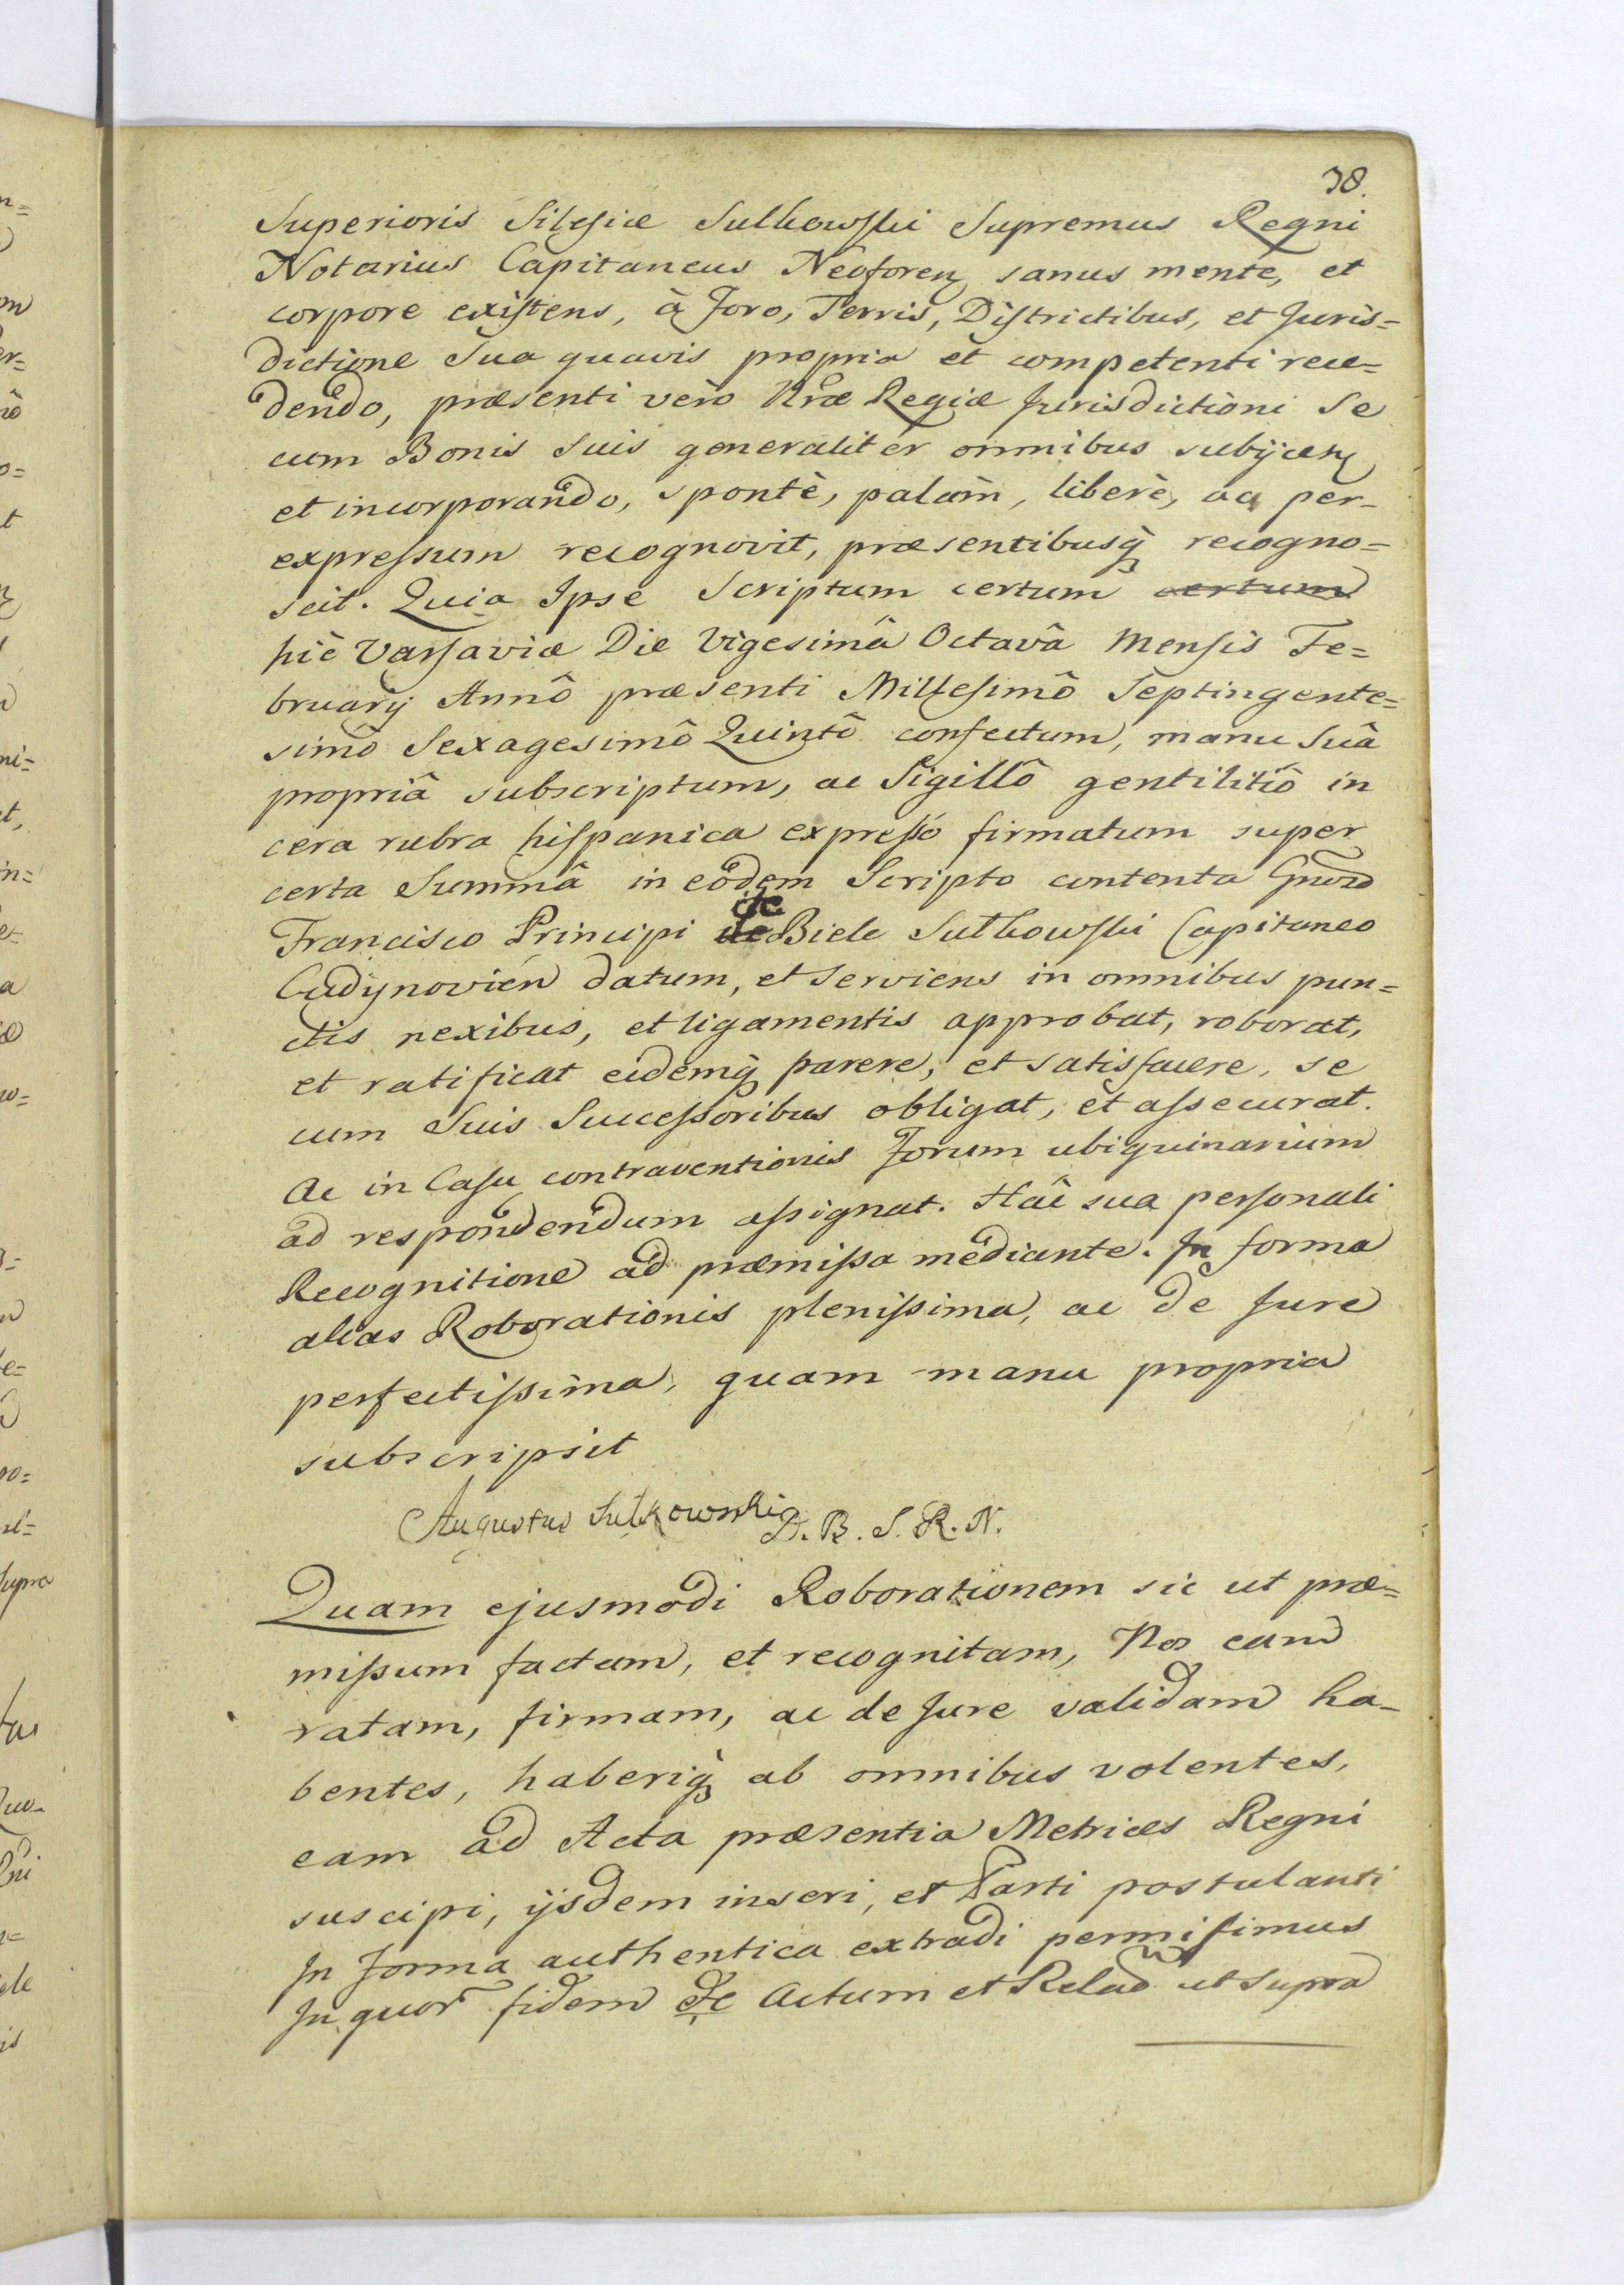 38.
Superioris Silesiæ Sulkowski Supremus Regni
Notarius Capitaneus Neoforen sanus mente, et
corpore existens, à Foro, Terris, Districtibus, et Juris=
dictione Sua quavis propria et competenti rece=
dendo, præsenti verò Nræ Regiæ Jurisdictioni Se
cum Bonis Suis generaliter omnibus subijcien
et incorporando, spontè, palam, liberè, ac per-
expressum recognovit, præsentibusq recogno=
scit. Quia Ipse Scriptum certum certum
hìc Varsaviæ Die Vigesimâ Octavâ Mensis Fe=
bruarij Annô præsenti Millesimô Septingente=
simô Sexagesimô Quintô confectum, manu Suâ
propriâ subscriptum, ac Sigillô gentilitiô in
cera rubra hispanica expressô firmatum super
certa Summâ in eodem Scripto contenta Gnoso
Francisco Principi de Biele Sulkowski Capitaneo
datum, et serviens in omnibus pun=
ctis nexibus, et ligamentis approbat, roborat,
et ratificat eidemq parere, et satisfacere, se
cum Suis Successoribus obligat, et assecurat.
Ac in Casu contraventionis Forum ubiquinarium
ad respondendum assignat. Hâc sua personali
Recognitione ad præmissa mediante. In forma
alias Roborationis plenissima, ac de Jure
perfectissima, quam manu propria
subscripsit
Augustus Sulkowski D. B. S. R. N.
Quam ejusmodi Roborationem sic ut præ=
missum factam, et recognitam, Nos eam
ratam, firmam, ac de Jure validam ha-
bentes, haberiq ab omnibus volentes,
eam ad Acta præsentia Metrices Regni
suscipi, ijsdem inseri, et Parti postulanti
In Forma authentica extradi permisimus
In quor fidem &c Actum et Relad ut Supra